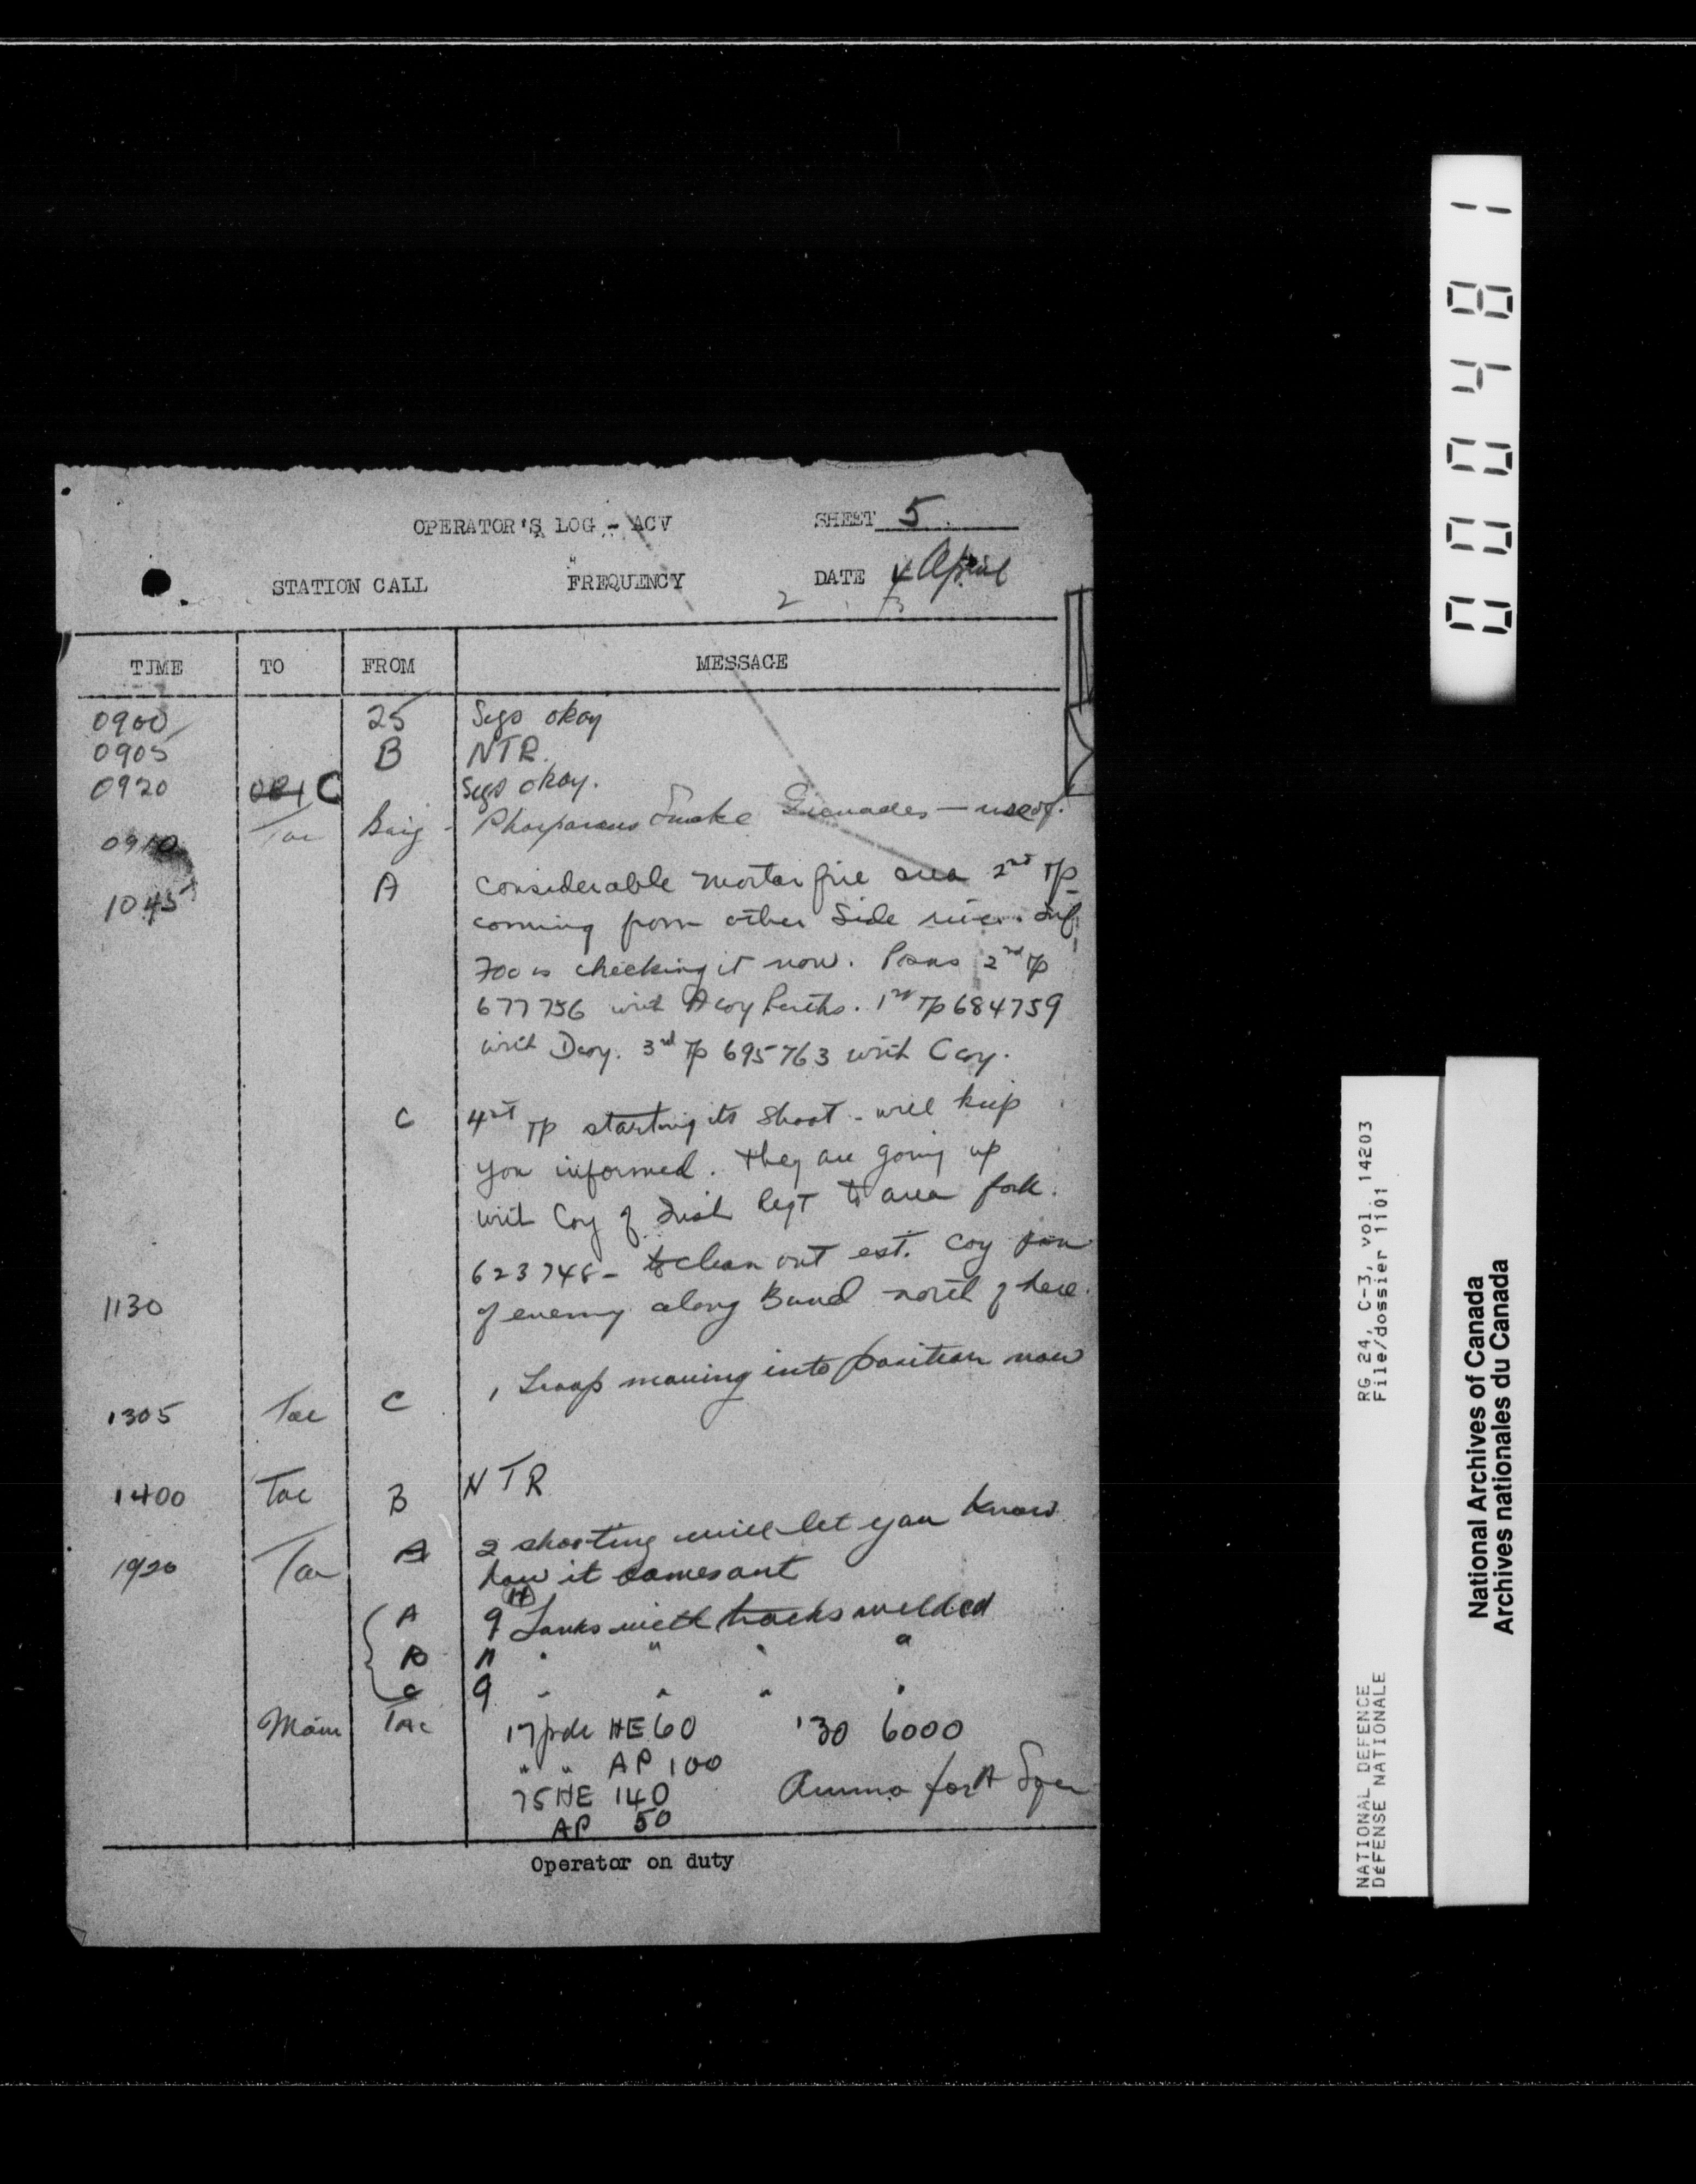 OPERATOR'S LOG - ACV SHEET 5
STATION CALL FREQUENCY DATE 4 April
2 3
TIME TO FROM MESSAGE
0900 25 Sigs okay
0905 B NTR.
0920 C Sigs okay.
0910 Tac Brig - Phosporous Smoke Grenades —
1045 A Considerable mortar fire area 2nd Tp
coming from other side river. Inf
700 is checking it now. Posns 2nd Tp
677756 with A coy Perths. 1st Tp 684759
with D coy. 3rd Tp 695763 with C coy.
C 4st Tp starting its shoot - will keep
you informed. they are going up
with Coy of Irish Regt to area fork.
623748 - to clean out est. coy
1130 of enemy along Bund north of here.
1305 Tac C 1 Troop moving into position now
1400 Tac B NTR
1920 Tac A 2 shooting will let you know
how it comes out
A 9 Tanks with tracks welded
B 11 " " " "
C 9 " " " "
Main Tac 17 pdr HE 60 '30 6000
" " AP 100
75 HE 140 Ammo for A Sqn
AP 50
Operator on duty
000481
RG 24, C-3, vol. 14203
File/dossier 1101
NATIONAL DEFENCE
DÉFENSE NATIONALE
National Archives of Canada
Archives nationales du Canada